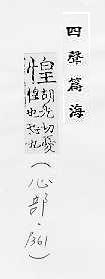 四聲篇海
惶
胡光切憂
惶也恐也
(心部.361)